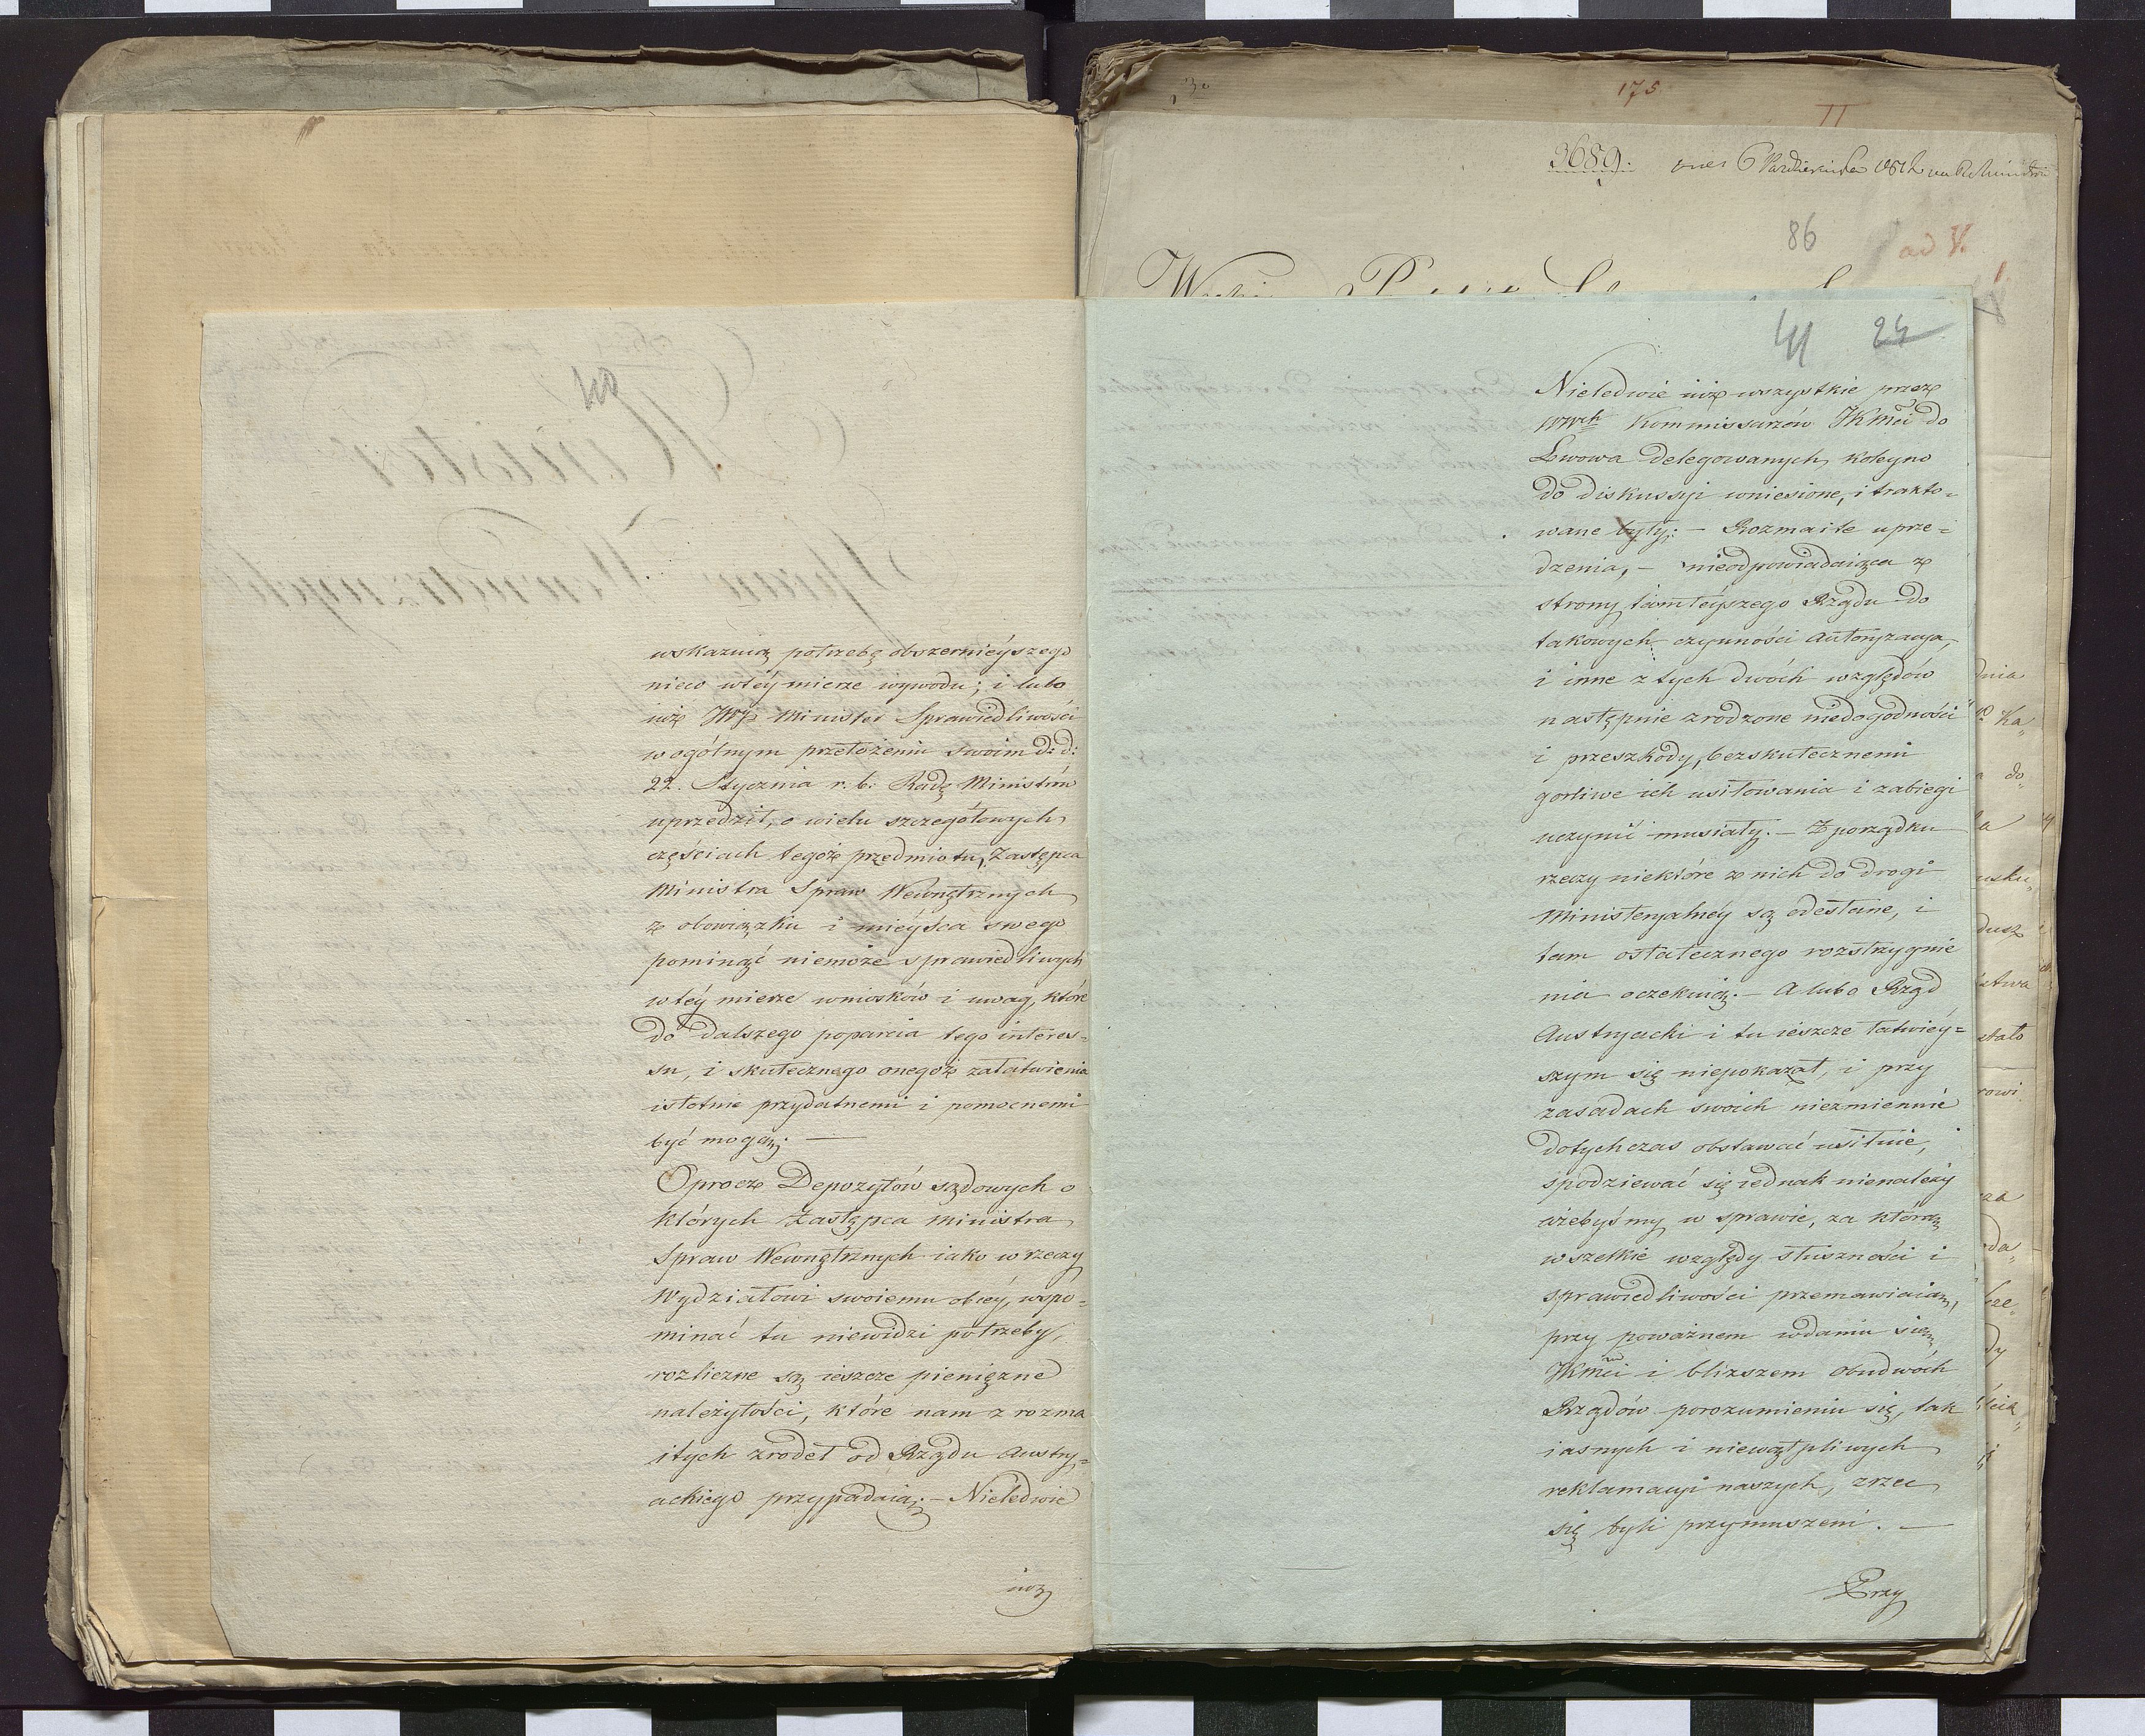 40
wskazuią potrzebę obszernieyszego
nieco wtéy mierze wywodu; i lubo
iuż JWJP Minister Sprawiedliwości
w ogólnym przełożeniu swoim d: d:
22. Stycznia r. b: Radę Ministrów
uprzedził, o wielu szczegółowych
częściach tegoż przedmiotu, Zastępca
Ministra Spraw Wewnętrznych
z obowiązku i mieysca swego
pominąć niemoże sprawiedliwych
wtéy mierze wniosków i uwag, które
do dalszego poparcia tego interes=
su, i skutecznego onegoż załatwienia
istotnie przydatnemi i pomocnemi
być mogą: —
Oprocz Depozytów sądowych o
których Zastępca Ministra
Spraw Wewnętrznych iako w rzeczy
Wydziałowi swoiemu obcéy, wspo=
minać tu niewidzi potrzeby,
rozliczne są ieszcze pieniężne
należytości, które nam z rozma
itych zrodeł od Rządu Austry=
ackiego przypadaią: — Nieledwie
iuż
175
II
3689.
86
ad V.
41 24
Nieledwie iuż wszystkie przez
Kommissarzów JKMci do
Lwowa delegowanych, koleyno
do diskussyi wniesione, i trakto=
wane były: — Rozmaite uprze=
dzenia, — nieodpowiadaiąca z
strony tamteyszego Rządu do
takowych czynności autoryzacya,
i inne z tych dwóch względów
następnie zrodzone niedogodności
i przeszkody, bezskutecznemi
gorliwe ich usiłowania i zabiegi
uczynić musiały. — Z porządku
rzeczy niektóre z nich do drogi
Ministeryalnéy są odesłane, i
tam ostatecznego rozstrzygnie
nia oczekuią. — A lubo Rząd
Austryacki i tu ieszcze łatwiéy=
szym się niepokazał, i przy
zasadach swoich niezmiennie
dotychczas obstawać usiłuie,
spodziewać się iednak nienależy
iżebyśmy w sprawie, za którą
wszelkie względy słuszności i
sprawiedliwości przemawiaią,
przy poważnem wdaniu się
JKMci i bliższem obudwóch
Rządów porozumieniu się, tak
iasnych i niewątpliwych
reklamacyi naszych, zrzec
się byli przymuszeni. —
Przy